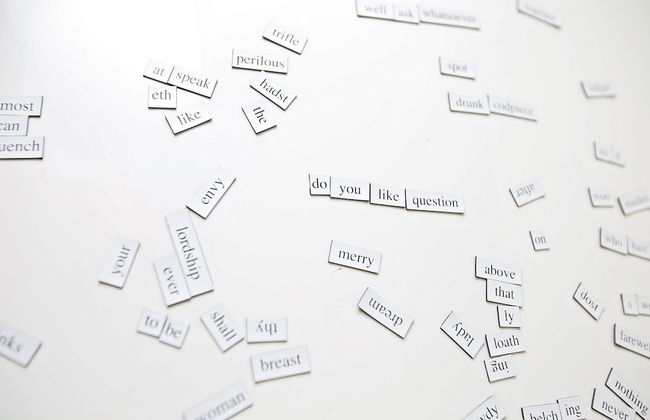 well ask whatsoever
trifle
perilous
at speak
eth
like
hadst
the
spot
drunk codpiece
most
can
uench
do you like question
envy
after
on
lordship
ever
your
merry
dream
above
that
ly
loath
ing
lady
to be
shall
thy
breast
woman
dost
who
farewe
nothing
never
belch ing